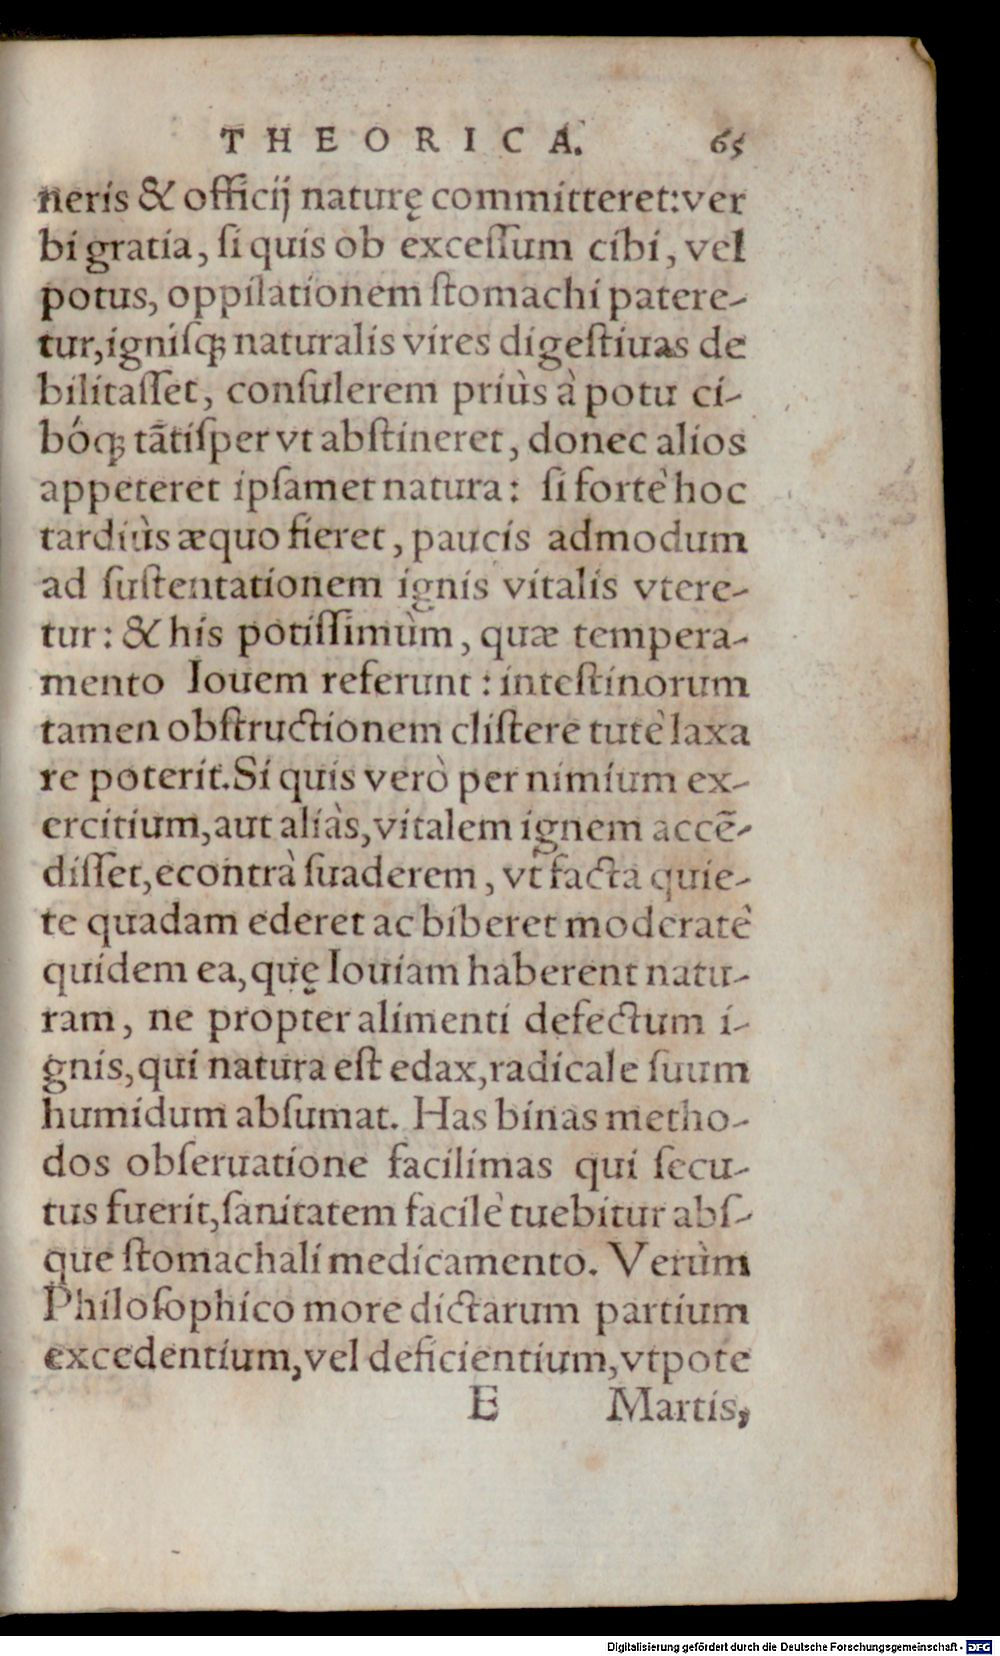 THEORICA. 65
neris & officij naturę committeret:ver
bi gratia, ſi quis ob exceſſum cibi, vel
potus, oppilationem ſtomachi patere-
tur,igniſq; naturalis vires digeſtiuas de
bilitaſſet, conſulerem priùs à potu ci-
bóq; tãtiſper vt abſtineret, donec alios
appeteret ipſamet natura: ſi fortè hoc
tardiùs æquo fieret, paucis admodum
ad ſuſtentationem ignis vitalis vtere-
tur: & his potiſſimùm, quæ tempera-
mento Iouem referunt: inteſtinorum
tamen obſtructionem cliſtere tutè laxa
re poterit.Si quis verò per nimium ex-
ercitium,aut aliàs,vitalem ignem accẽ-
diſſet,econtrà ſuaderem, vt facta quie-
te quadam ederet ac biberet moderatè
quidem ea,quę Iouiam haberent natu-
ram, ne propter alimenti defectum i-
gnis,qui natura eſt edax,radicale ſuum
humidum abſumat. Has binas metho-
dos obſeruatione facilimas qui ſecu-
tus fuerit,ſanitatem facilè tuebitur abſ-
que ſtomachali medicamento. Verùm
Philoſophico more dictarum partium
excedentium,vel deficientium,vtpote
E Martis,
Digitalisierung gefördert durch die Deutsche Forschungsgemeinschaft - DFG